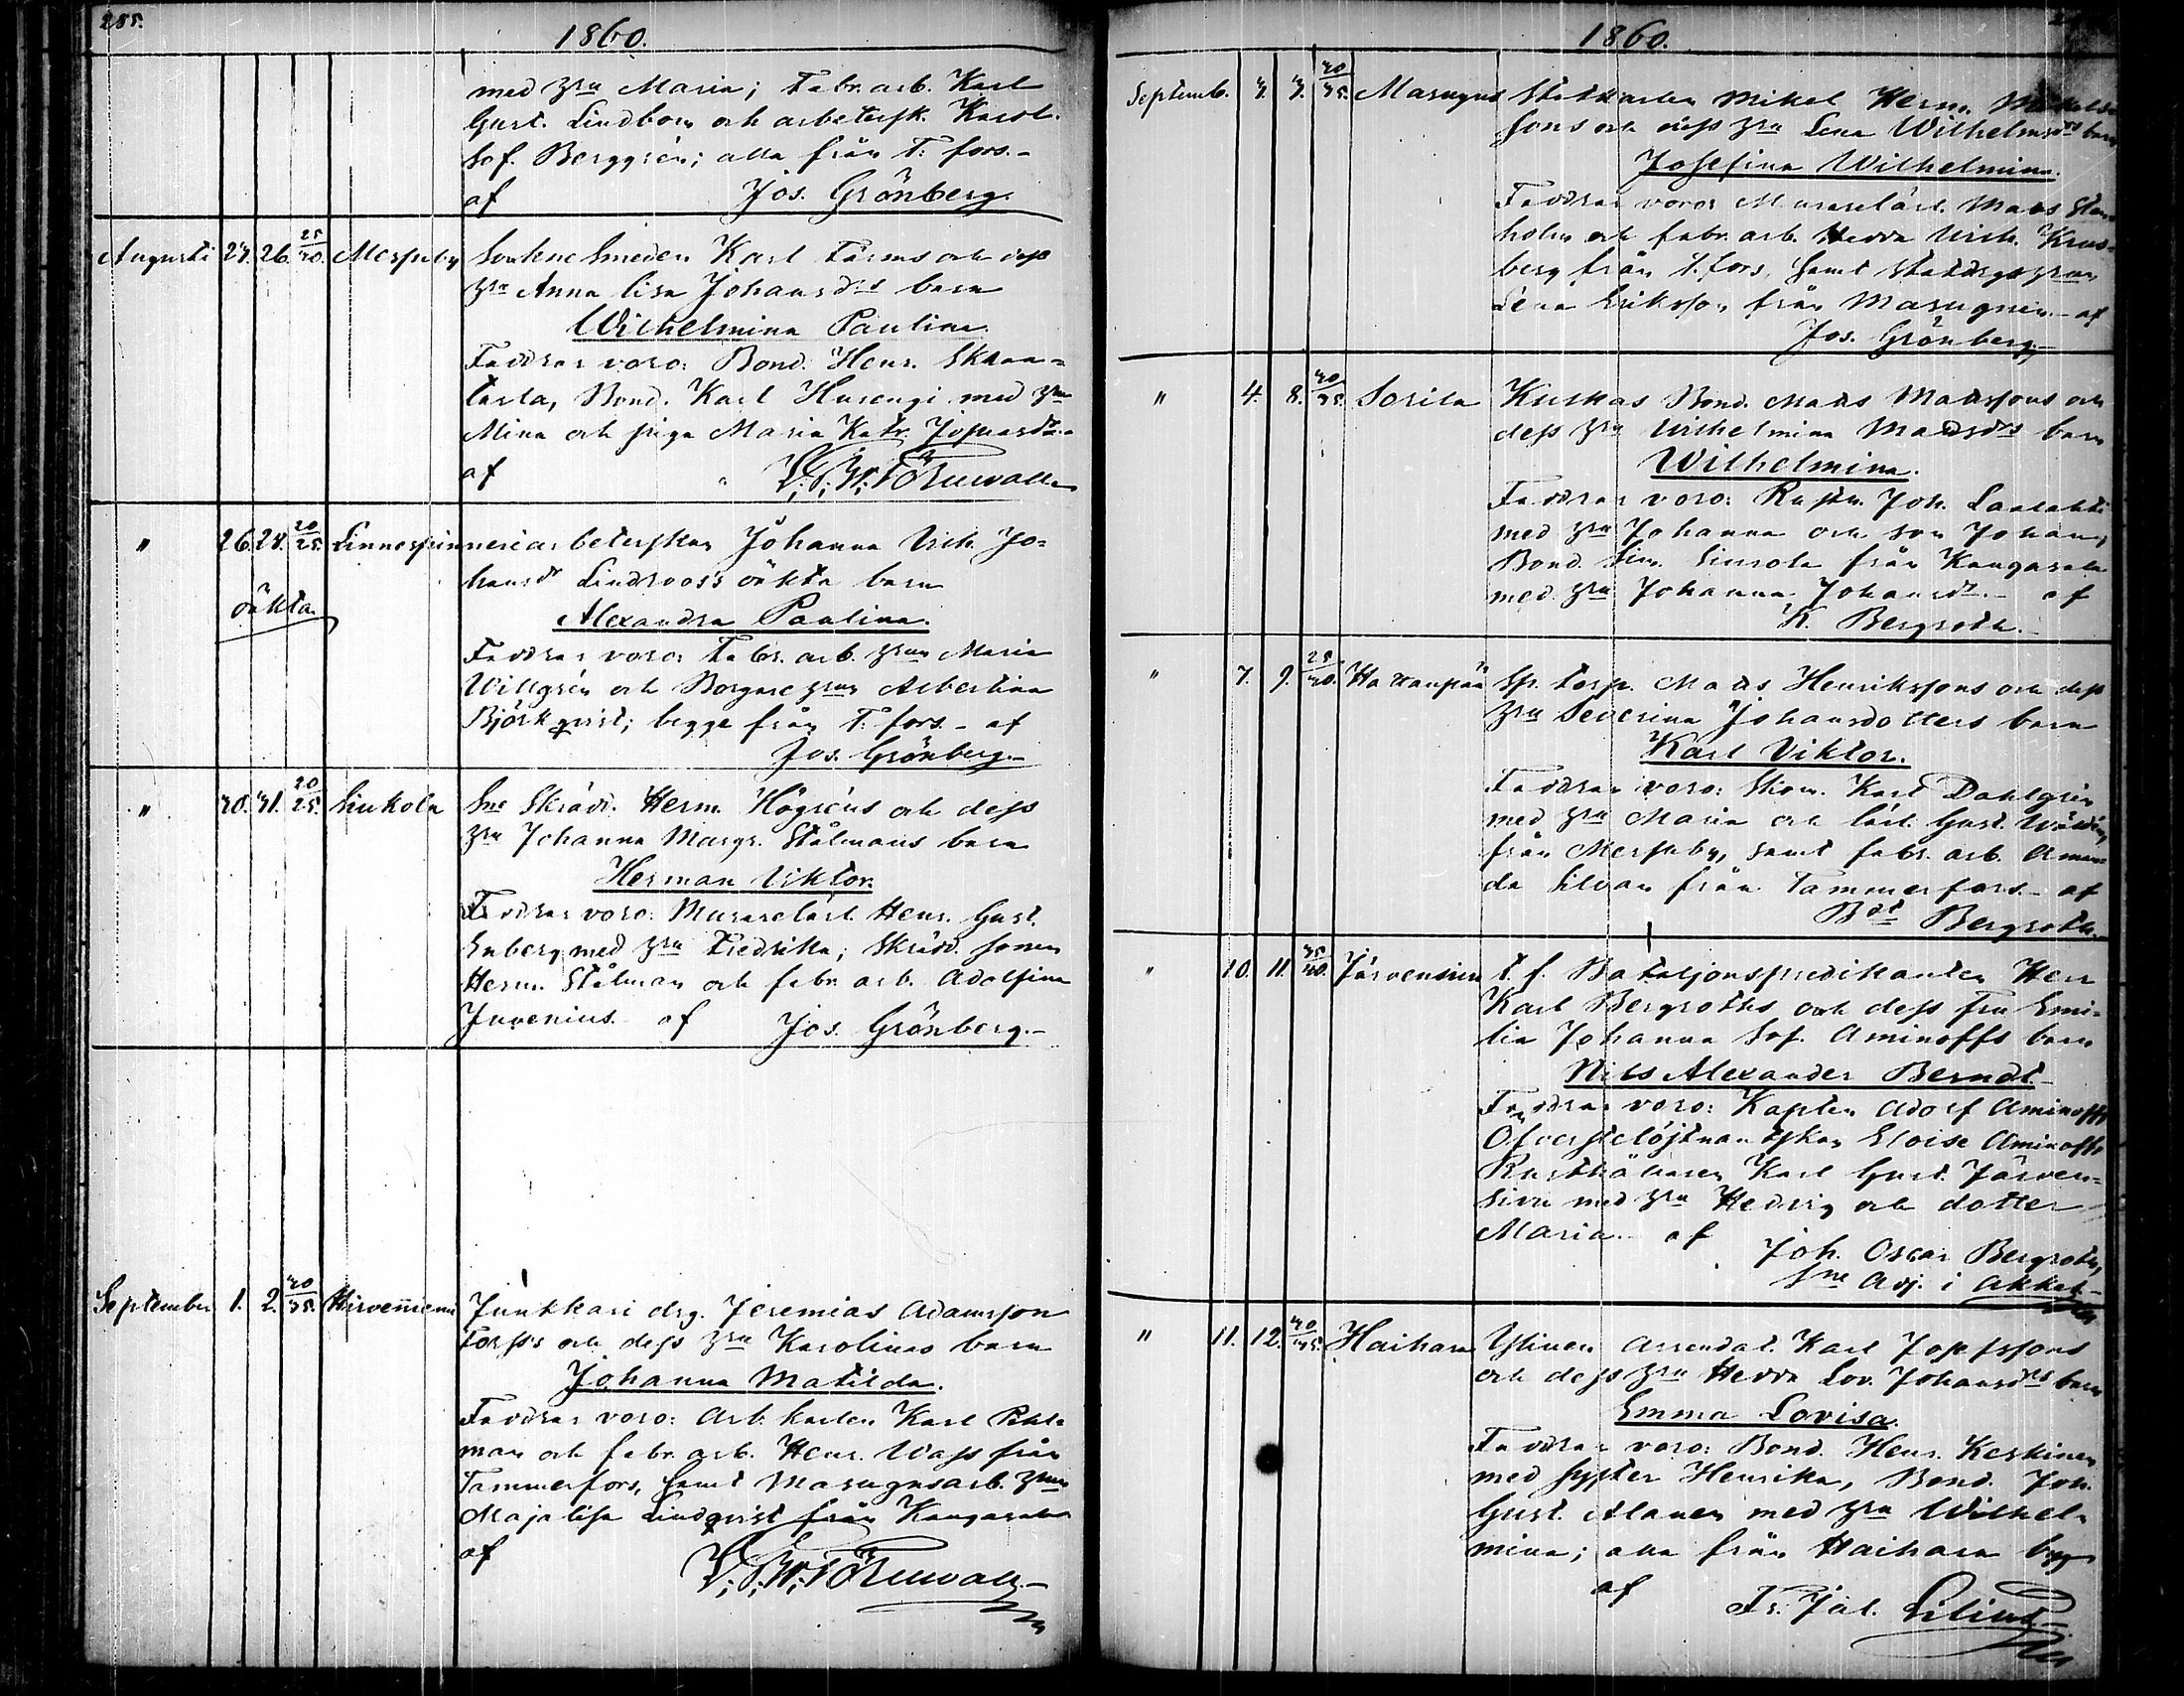 285.
1860.
med hru Maria; Fabr. arb. Karl
Gust. Lindbom och arbetersk. Karol.
Sof. Berggrén; alla från T: fors. -
af Jos. Grönberg.
Augusti 24. 26. 25/30. Messuby Sockne Smeden Karl Färms och dess
hru Anna Lisa Johansdrs barn
Wilhelmina Paulina.
Faddrar voro: Bond. Henr. Skraa=
tarla, Bond. Karl Hurengi med hru
Mina och piga Maria Katr. Josuasdr.
af
" 26. 27. 20/25. Linnespinneriarbeterskan Johanna Ulr. Jo=
hansdr Lindroos's oäkta barn
oäkta
Alexandra Paulina.
Faddrar voro: Fabr. arb. hrun Maria
Willgrén och Borgare hrun Albertina
Björkqvist; begge från T: fors. - af
Jos. Grönberg. -
" 30. 31. 20/25. Liukola Sne Skrädd. Herm. Högréns och dess
hru Johanna Margr. Stålmans barn
Herman Viktor.
Faddrar voro: Murarelärl. Henr. Gust.
Enberg med hru Fredrika; Skrädd. sonen
Herm. Stålman och fabr. arb. Adolfina
Juvenius. af Jos. Grönberg. -
September 1. 2. 30/35. Hirvenniemi Junkkari drg. Jeremias Adamsson
Torps's och dess hru Karolinas barn
Johanna Matilda.
Faddrar voro: Arb. karlen Karl Pohl=
man och fabr. arb. Henr. Wass från
Tammerfors, samt Masugnsarb. hrun
Maja Lisa Lindqvist från Kangasala
af
1860.
Septemb. 3. 3. 30/35. Masugns Statkarlen Mikel Herm. Mikels=
sons och dess hru Lena Wilhelmsdrs barn
Josefina Wilhelmina.
Faddrar voro: Murarelärl. Mats Sten=
holm och fabr. arb. Hedda Ulr. Krus=
berg från T. fors, samt statdrgs hrun
Lena Eriksson från Masugnen. - af
Jos. Grönberg. -
" 4. 8. 30/35. Sorila Kuckas Bond. Mats Matssons och
dess hru Wilhelmina Matsdrs barn
Wilhelmina.
Faddrar voro: Rustm. Joh. Laalahti
med hru Johanna och son Johan,
Bond. Sim. Simola från Kangasala
med hru Johanna Johansdr. - af
K. Bergroth. -
" 7. 9. 25/30. Hatanpää Sp. torp. Mats Henrikssons och dess
hru Severina Johansdotters barn
Karl Viktor.
Faddrar voro: Skom. Karl Dahlgrén
med hru Maria och lärl. Gust.
från Messuby, samt fabr. arb. Aman=
da Silvan från Tammerfors. - af
Bdt Bergroth.
" 10. 11. 35/40. Järvensivu t. f. Bataljonspredikanten Herr
Karl Bergroths och dess Fru Emi=
lia Johanna Sof. Aminoffs barn
Nils Alexander Berndt. -
Faddrar voro: Kapten Adolf Aminoff,
Öfverstelöjtnantskan Eloise Aminoff,
Rusthållaren Karl Gust. Järven=
sivu med hru Hedvig och dotter
Maria. - af Joh. Oscar Bergroth,
Sne Adj. i Akkas. -
" 11. 12. 30/35. Haihara Ylinen Arrendat. Karl Josefssons
och dess hru Hedda Lov. Johansdrs barn
Emma Lovisa.
Faddrar voro: Bond. Henr. Keskinen
med syster Henrika, Bond. Joh.
Gust. Alanen med hru Wilhel=
mina; alla från Haihara by.
af Fr. Jal.